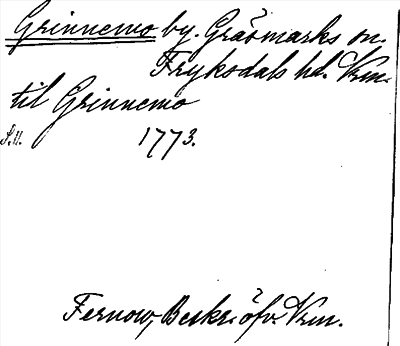 Grinnemo by. Gräsmarks sn.
Fryksdals hd. Vrm.
til Grinnemo
S. 11. 1773.
Fernow, Beskr. öfv. Vrm.